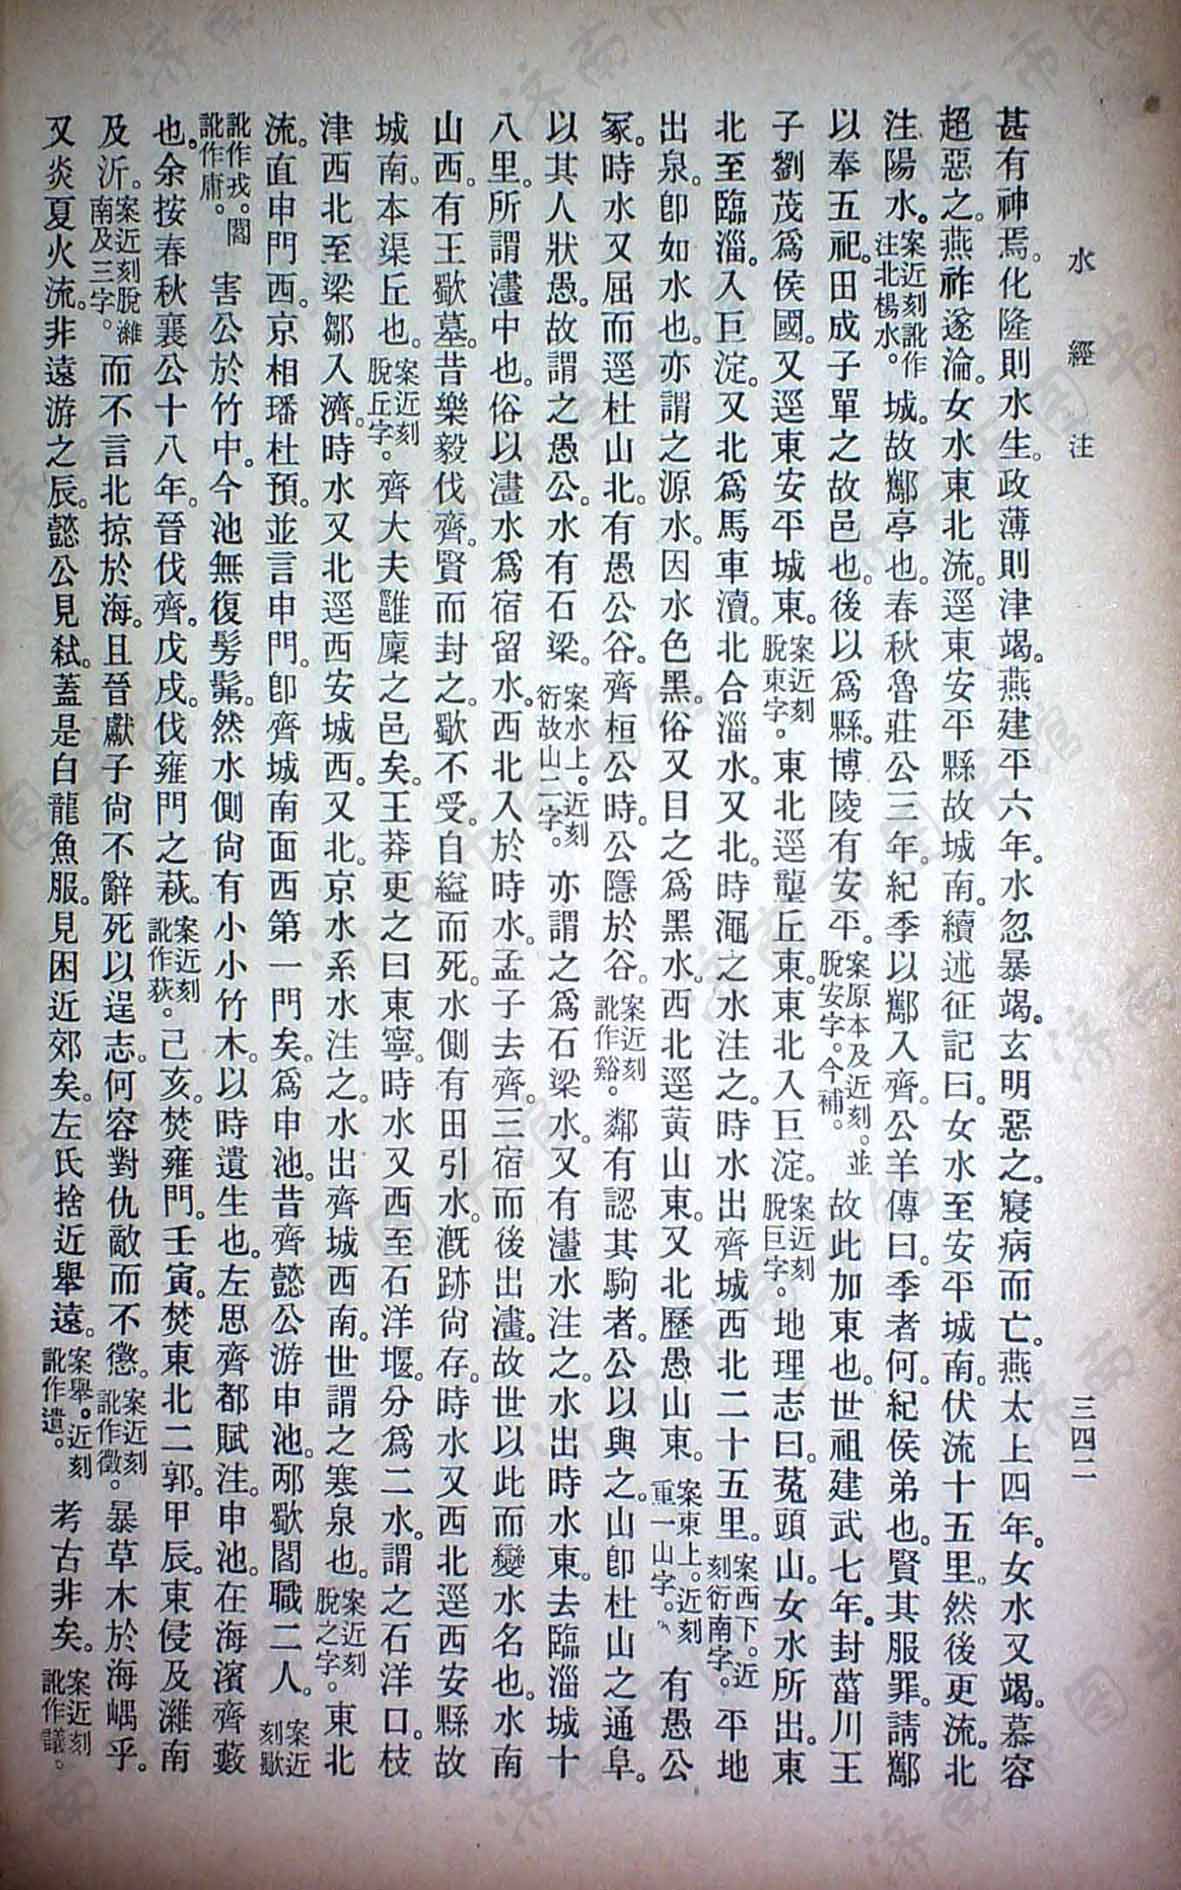 水經注
三四二
甚有神焉。化隆則水生。政薄則津竭。燕建平六年。水忽暴竭。玄明惡之。寢病而亡。燕太上四年。女水又竭。慕容
超惡之。燕祚遂淪。女水東北流。逕東安平縣故城南。續述征記曰。女水至安平城南。伏流十五里。然後更流。北
注陽水。案近刻訛作注北楊水。城。故酅亭也。春秋魯莊公三年。紀季以酅入齊。公羊傳曰。季者何。紀侯弟也。賢其服罪。請酅
以奉五祀。田成子單之故邑也。後以爲縣。博陵有安平。案原本及近刻。並脫安字。今補。故此加東也。世祖建武七年。封菑川王
子劉茂爲侯國。又逕東安平城東。案近刻脫東字。東北逕壟丘東。東北入巨淀。案近刻脫巨字。地理志曰。菟頭山。女水所出。東
北至臨淄。入巨淀。又北爲馬車瀆。北合淄水。又北。時澠之水注之。時水出齊城西北二十五里。案西下。近刻衍南字。平地
出泉。卽如水也。亦謂之源水。因水色黑。俗又目之爲黑水。西北逕黃山東。又北歷愚山東。案東上。近刻重一山字。有愚公
冢。時水又屈而逕杜山北。有愚公谷。齊桓公時。公隱於谷。案近刻訛作谿。鄰有認其駒者。公以與之。山卽杜山之通阜。
以其人狀愚。故謂之愚公。水有石梁。案水上。近刻衍故山二字。亦謂之爲石梁水。又有澅水注之。水出時水東。去臨淄城十
八里。所謂澅中也。俗以澅水爲宿留水。西北入於時水。孟子去齊。三宿而後出澅。故世以此而變水名也。水南
山西。有王歜墓。昔樂毅伐齊。賢而封之。歜不受。自縊而死。水側有田引水。溉跡尙存。時水又西北逕西安縣故
城南。本渠丘也。案近刻脫丘字。齊大夫雝廩之邑矣。王莽更之曰東寧。時水又西至石洋堰。分爲二水。謂之石洋口。枝
津西北至梁鄒入濟。時水又北逕西安城西。又北。京水系水注之。水出齊城西南。世謂之寒泉也。案近刻脫之字。東北
流。直申門西。京相璠杜預。並言申門。卽齊城南面西第一門矣。爲申池。昔齊懿公游申池。邴歜閻職二人。案近刻歜
訛作戎。閻訛作庸。害公於竹中。今池無復髣髴。然水側尙有小小竹木。以時遺生也。左思齊都賦注。申池。在海濱齊藪
也。余按春秋襄公十八年。晉伐齊。戊戌。伐雍門之萩。案近刻訛作荻。己亥。焚雍門。壬寅。焚東北二郭。甲辰。東侵及濰南
及沂。案近刻脫濰南及三字。而不言北掠於海。且晉獻子尙不辭死以逞志。何容對仇敵而不懲。案近刻訛作徵。暴草木於海嵎乎。
又炎夏火流。非遠游之辰。懿公見弒。蓋是白龍魚服。見困近郊矣。左氏捨近舉遠。案舉。近刻訛作遺。考古非矣。案近刻訛作議。